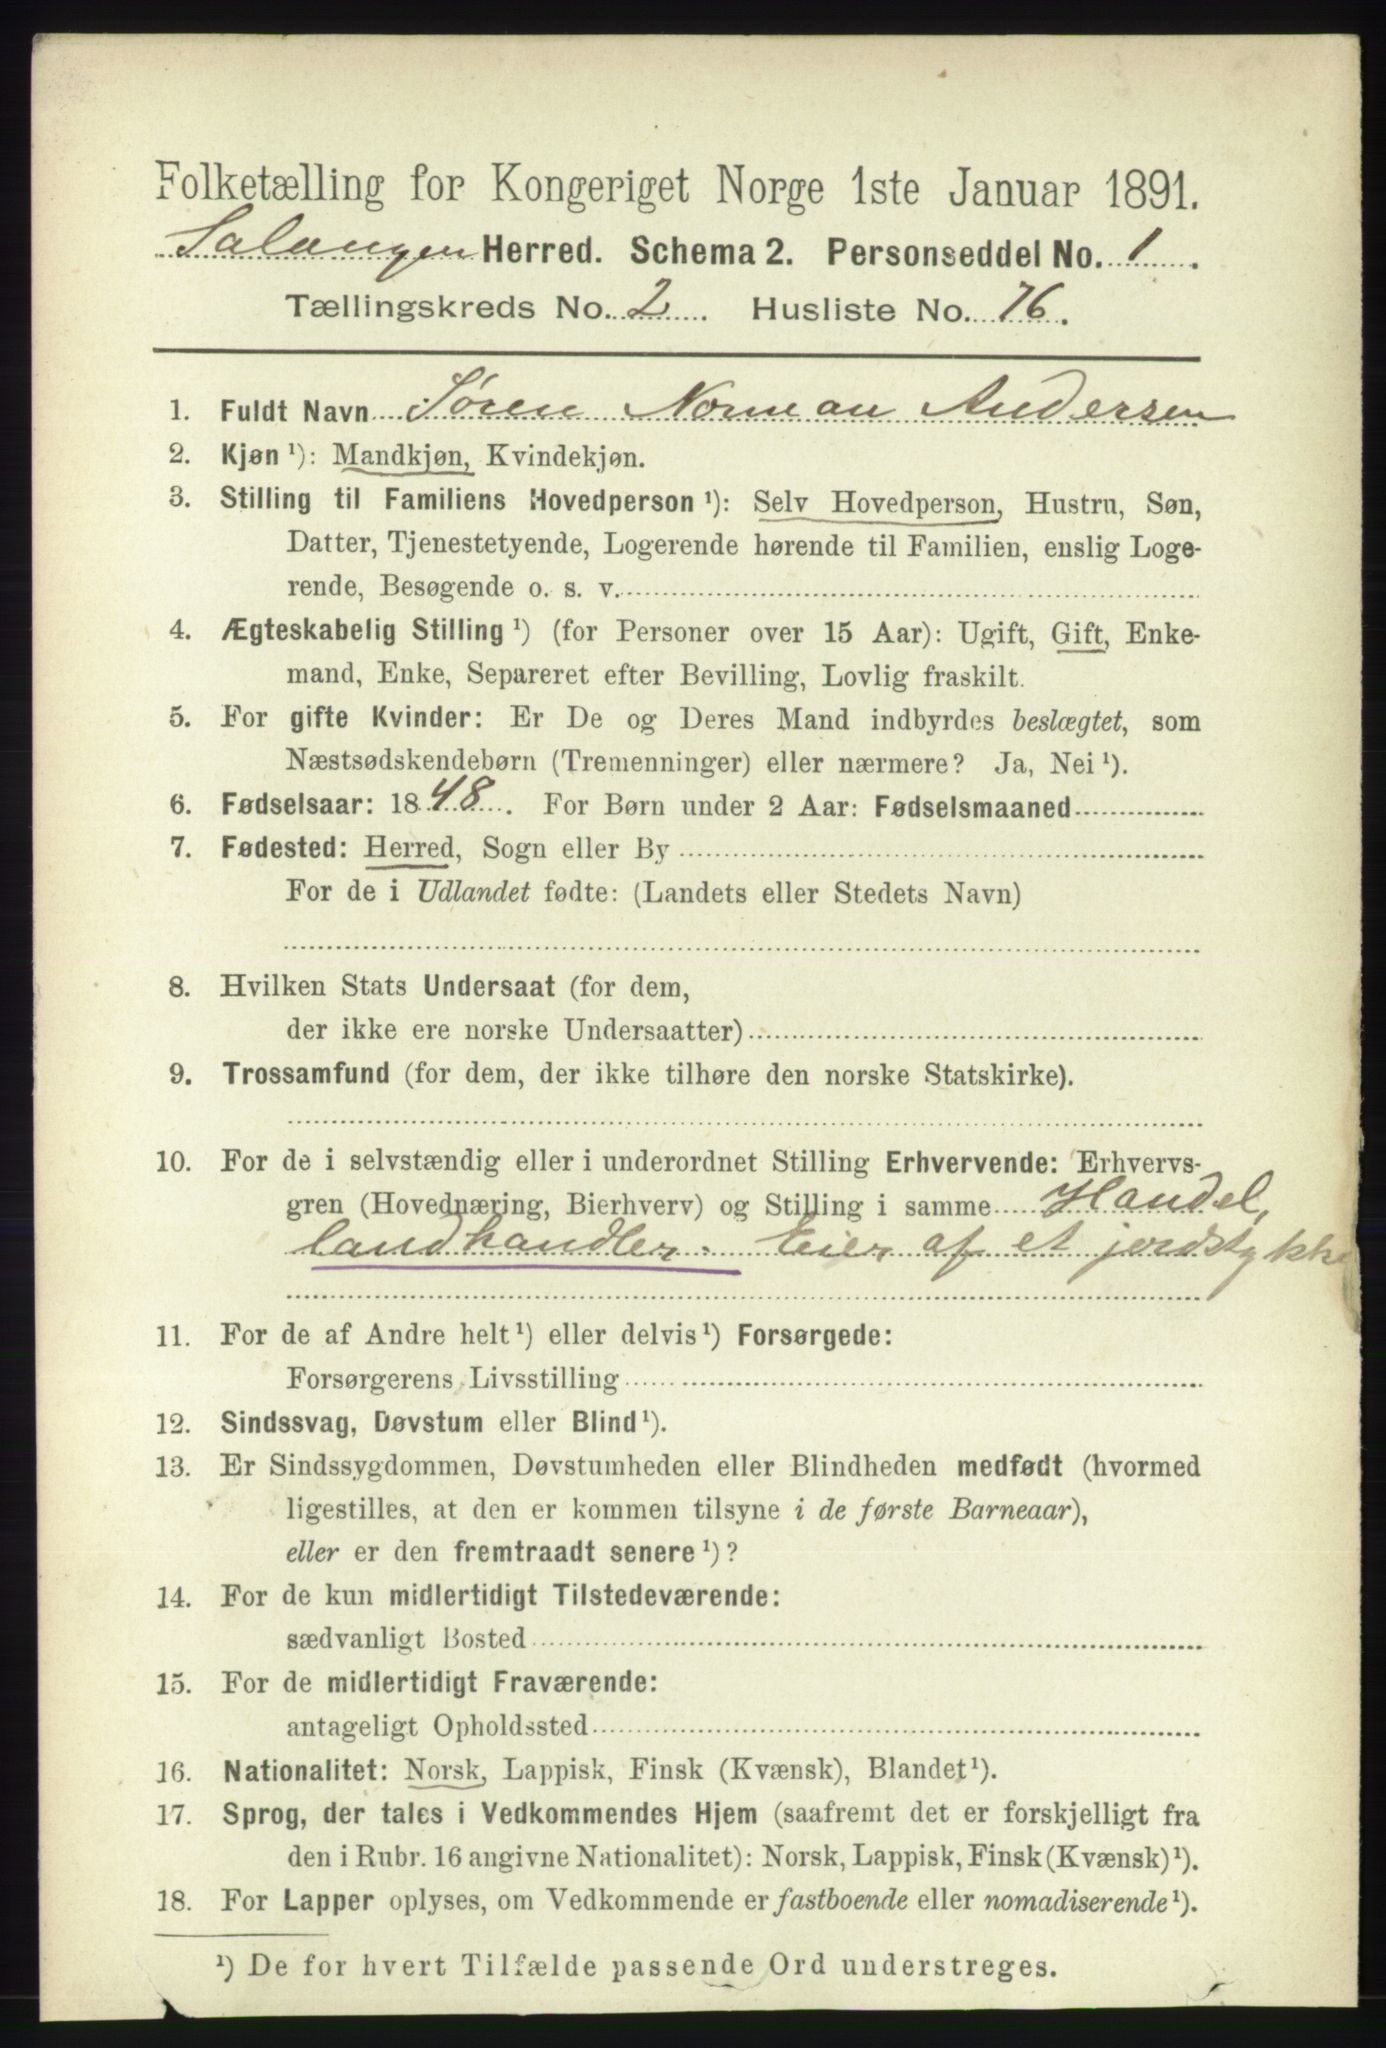 Folketælling for Kongeriget Norge 1ste Januar 1891.
Salangen Herred. Schema 2. Personseddel No. 1.
Tællingskreds No. 2. Husliste No. 76.
1. Fuldt Navn Søren Norman Andersen
2. Kjøn ¹): Mandkjøn, Kvindekjøn.
3. Stilling til Familiens Hovedperson ¹): Selv Hovedperson, Hustru, Søn,
Datter, Tjenestetyende, Logerende hørende til Familien, enslig Loge-
rende, Besøgende o. s. v.
4. Ægteskabelig Stilling ¹) (for Personer over 15 Aar): Ugift, Gift, Enke-
mand, Enke, Separeret efter Bevilling, Lovlig fraskilt.
5. For gifte Kvinder: Er De og Deres Mand indbyrdes beslægtet, som
Næstsødskendebørn (Tremenninger) eller nærmere? Ja, Nei ¹).
6. Fødselsaar: 1848. For Børn under 2 Aar: Fødselsmaaned
7. Fødested: Herred, Sogn eller By
For de i Udlandet fødte: (Landets eller Stedets Navn)
8. Hvilken Stats Undersaat (for dem,
der ikke ere norske Undersaatter)
9. Trossamfund (for dem, der ikke tilhøre den norske Statskirke).
10. For de i selvstændig eller i underordnet Stilling Erhvervende: Erhvervs-
gren (Hovednæring, Bierhverv) og Stilling i samme Handel,
landhandler. Eier af et jordstykke
11. For de af Andre helt ¹) eller delvis ¹) Forsørgede:
Forsørgerens Livsstilling
12. Sindssvag, Døvstum eller Blind ¹).
13. Er Sindssygdommen, Døvstumheden eller Blindheden medfødt (hvormed
ligestilles, at den er kommen tilsyne i de første Barneaar),
eller er den fremtraadt senere ¹)?
14. For de kun midlertidigt Tilstedeværende:
sædvanligt Bosted
15. For de midlertidigt Fraværende:
antageligt Opholdssted
16. Nationalitet: Norsk, Lappisk, Finsk (Kvænsk), Blandet ¹).
17. Sprog, der tales i Vedkommendes Hjem (saafremt det er forskjelligt fra
den i Rubr. 16 angivne Nationalitet): Norsk, Lappisk, Finsk (Kvænsk) ¹).
18. For Lapper oplyses, om Vedkommende er fastboende eller nomadiserende ¹).
¹) De for hvert Tilfælde passende Ord understreges.